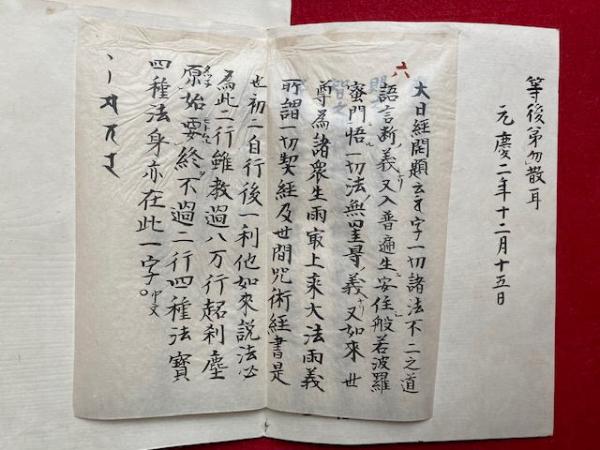 等後第勿散耳
元慶二年十二月十五日
六
大日經開題云字一切諸法不二之道
語言断義又入普遍生安住般若波羅
蜜門悟一切法無罣㝵義又如來世
尊為諸衆生雨最上乗大法雨義
所謂一切契經及世間呪術經書是
也初二自行後一利他如來説法必
為此二行雖教過八万行超刹塵
原始要終不過二行四種法寶
四種法身亦在此一字。